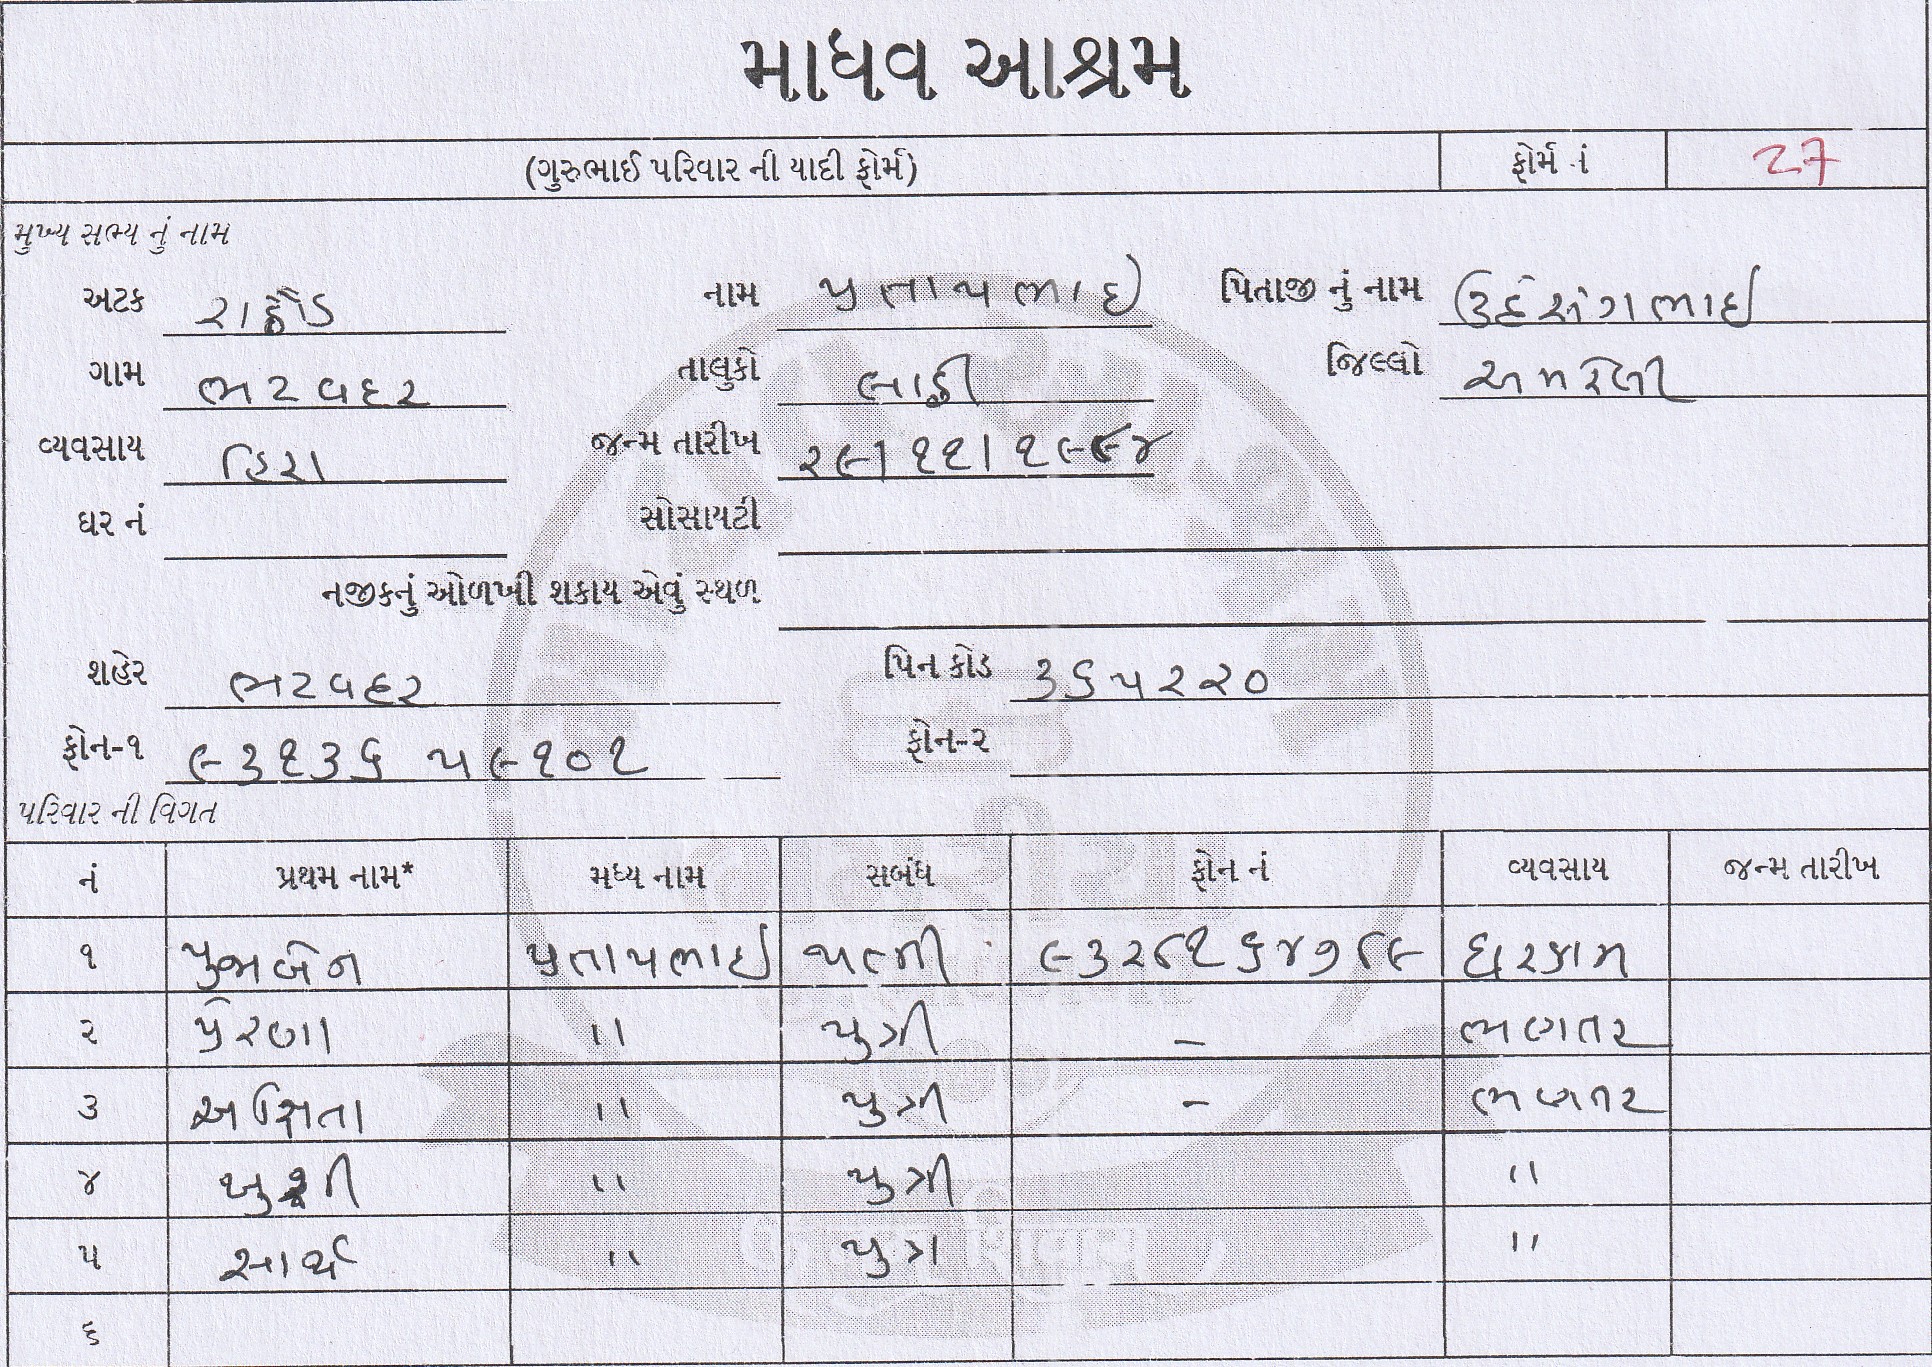 માધવ આશ્રમ
(ગુરુભાઈ પરિવાર ની યાદી ફોર્મ) ફોર્મ નં 27
મુખ્ય સભ્ય નું નામ
અટક રાઠોડ નામ પ્રતાપભાઇ પિતાજી નું નામ ઉદેસંગભાઇ
ગામ ભટવદર તાલુકો લાઠી જિલ્લો અમરેલી
વ્યવસાય હિરા જન્મ તારીખ ૨૯/૧૧/૧૯૮૪
ઘર નં સોસાયટી
નજીકનું ઓળખી શકાય એવું સ્થળ
શહેર ભટવદર પિન કોડ ૩૬૫૨૨૦
ફોન-૧ ૯૩૧૩૬ ૫૯૧૦૧ ફોન-૨
પરિવાર ની વિગત
નં પ્રથમ નામ* મધ્ય નામ સબંધ ફોન નં વ્યવસાય જન્મ તારીખ
૧ પુજાબેન પ્રતાપભાઇ પત્ની ૯૩૨૮૧૬૪૭૮૯ ઘરકામ
૨ પ્રેરણા " પુત્રી - ભણતર
૩ અક્ષિતા " પુત્રી - ભણતર
૪ ખુશી " પુત્રી "
૫ સાર્થ " પુત્ર "
૬